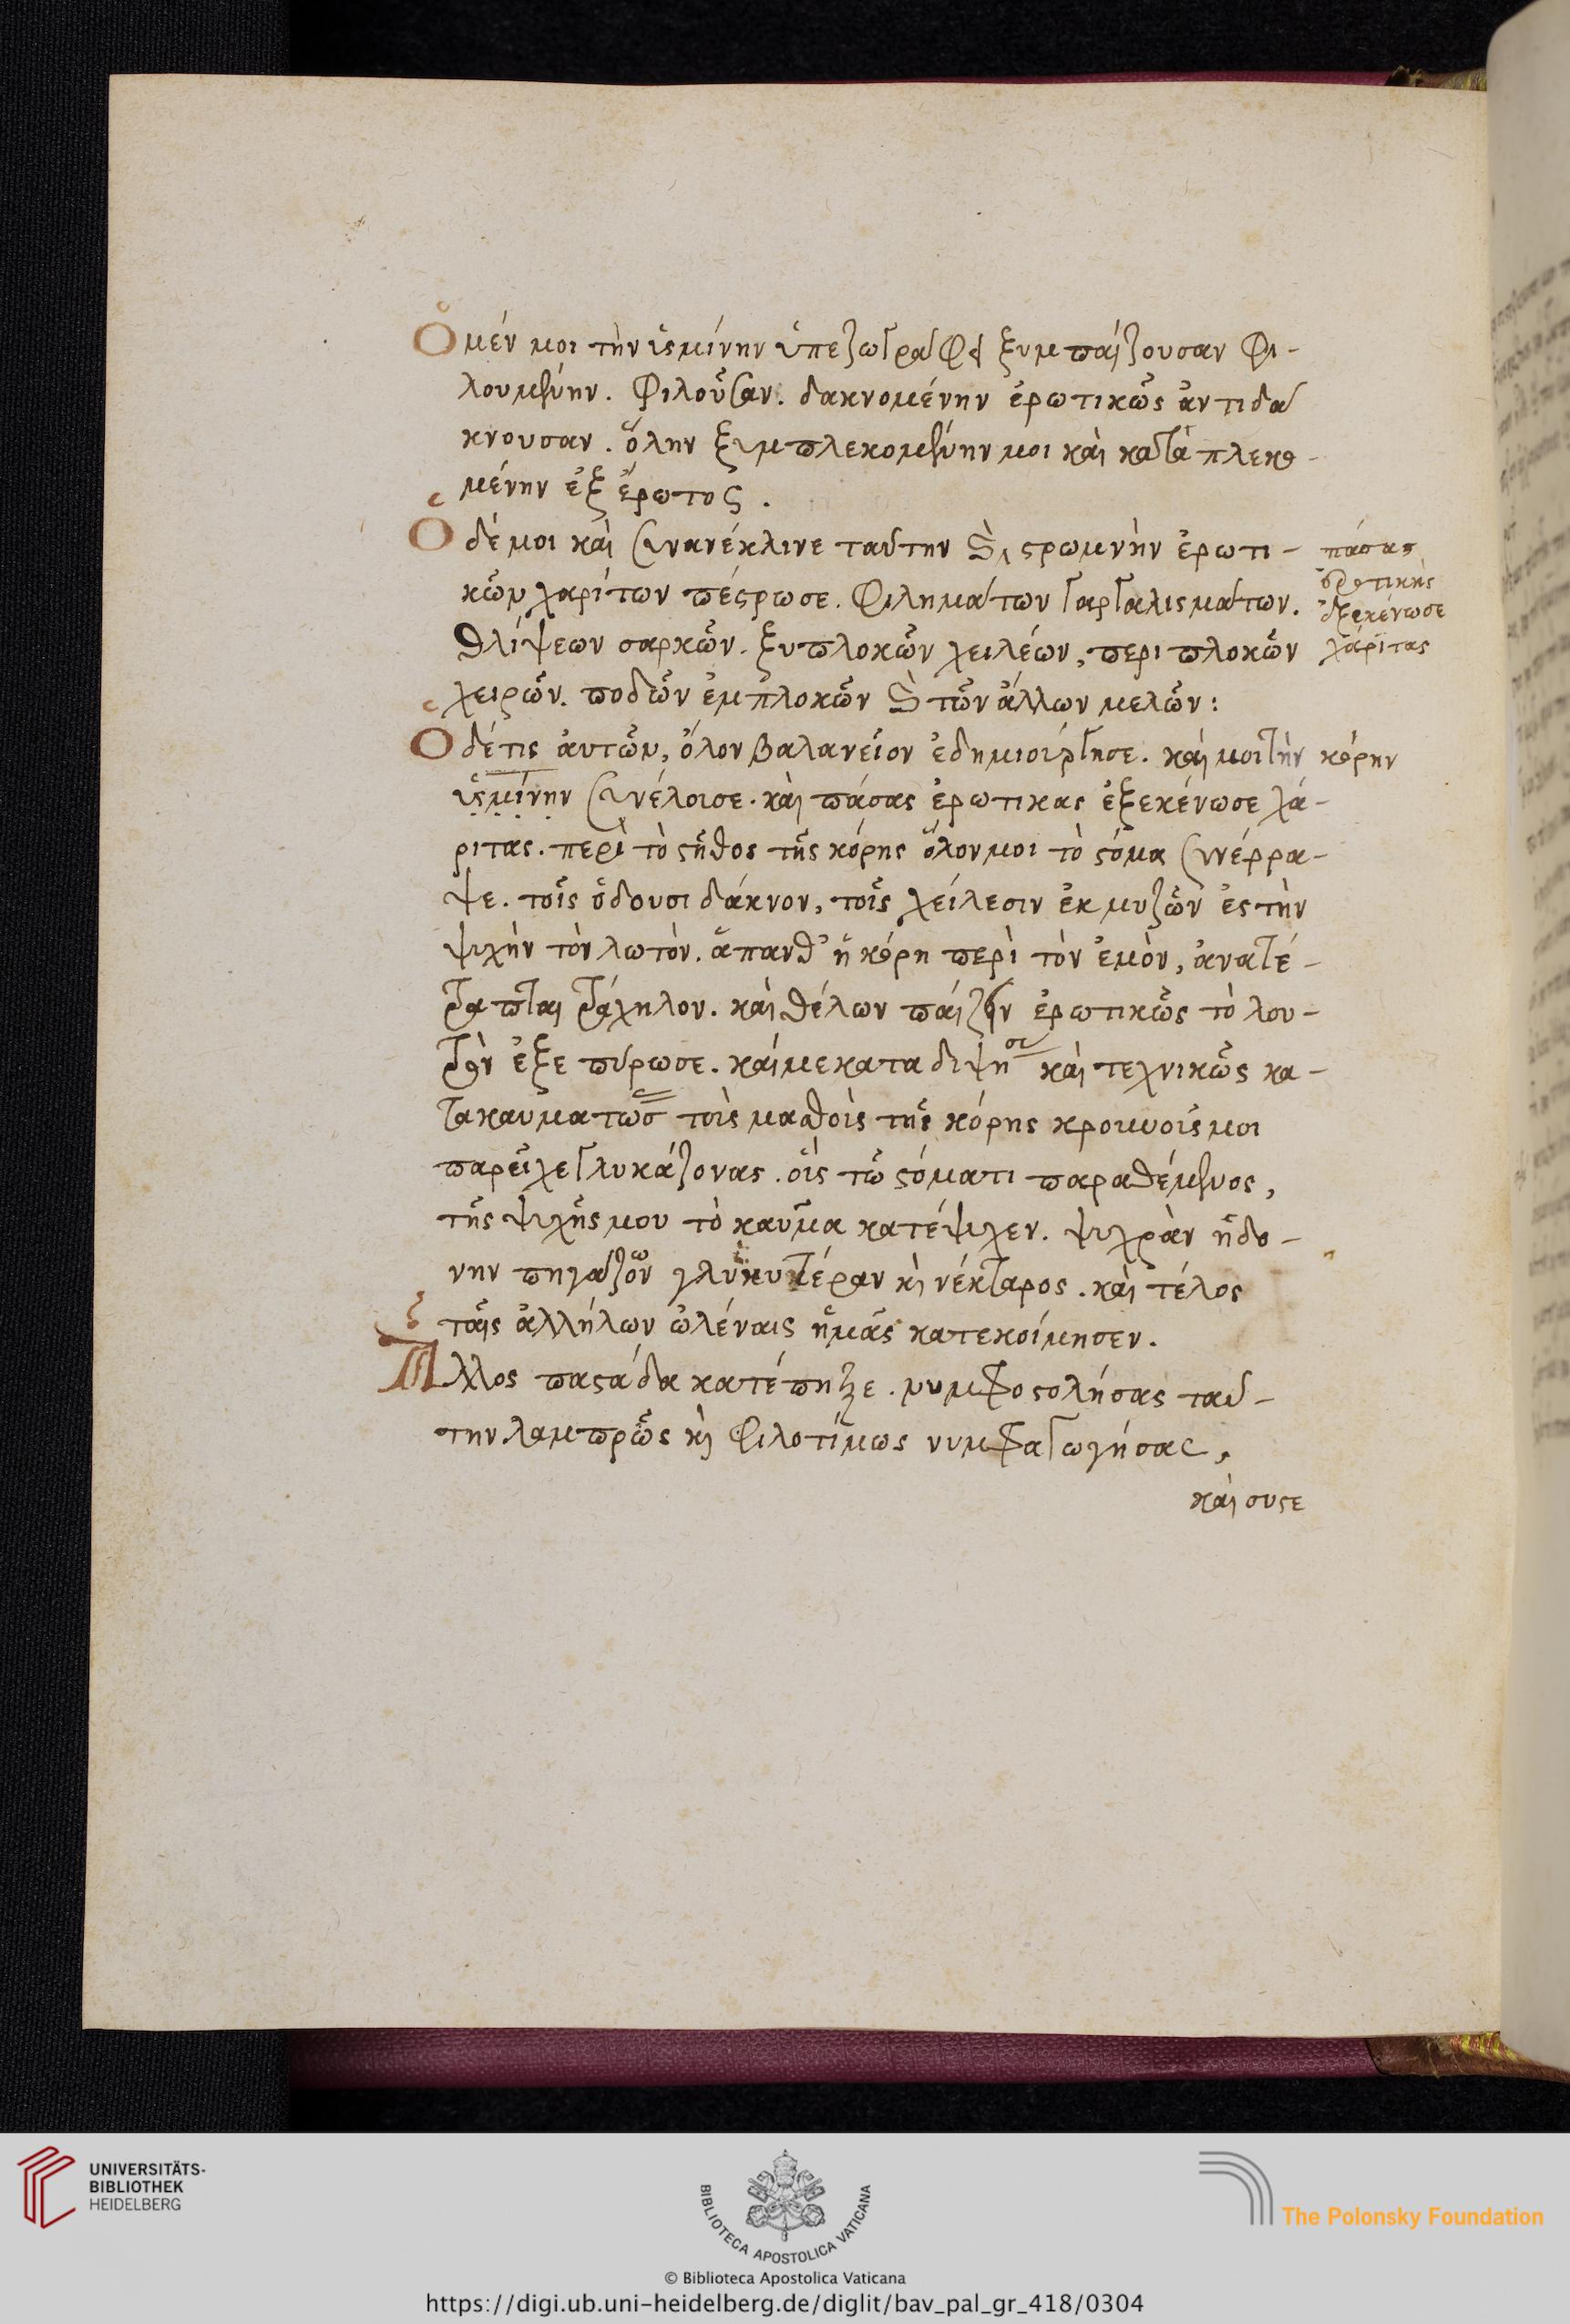 Ὁ μέν μοι τὴν ὑσμίνην ὑπεζωγράφει ξυμπαίζουσαν φι-
λουμένην. φιλοῦσαν. δακνομένην ἐρωτικῶς ἀντιδά
κνουσαν. ὅλην ξυμπλεκομένην μοι καὶ καταπλεκο-
μένην ἐξ ἔρωτος.
Ὁ δέ μοι καὶ συνανέκλινε ταύτην καὶ στρωμνὴν ἐρωτι-
κῶν χαρίτων πέστρωσε. φιλημάτων γαργαλισμάτων.
θλίψεων σαρκῶν. ξυπλοκῶν χειλέων, περιπλοκῶν
χειρῶν. ποδῶν ἐμπλοκῶν καὶ τῶν ἄλλων μελῶν:
πάσας
ἐρωτικὰς
ἐξεκένωσε
χάριτας
Ὁ δέ τις αὐτῶν, ὅλον βαλανεῖον ἐδημιούργησε. καί μοι τὴν κόρην
ὑσμίνην συνέλουσε. καὶ πάσας ἐρωτικας ἐξεκένωσε χά-
ριτας. περὶ τὸ στῆθος τῆς κόρης ὅλον μοι τὸ στόμα συνέρρα-
ψε. τοῖς ὀδουσι δάκνον, τοῖς χείλεσιν ἐκμυζῶν ἐς τὴν
ψυχὴν τὸν λωτόν. ἅπανθ' ἡ κόρη περὶ τὸν ἐμὸν, ἀνατέ-
τραπται τράχηλον. καὶ θέλων παίζειν ἐρωτικῶς τὸ λου-
τρὸν ἐξεπύρωσε. καί με καταδιψήσει καὶ τεχνικῶς κα-
τακαυματώσας τοὺς μασθοὺς τῆς κόρης κρουνούς μοι
παρεῖχε γλυκάζονας. οἷς τῶ στόματι παραθέμενος,
τῆς ψυχῆς μου τὸ καῦμα κατέψυχεν. ψυχρὰν ἡδο-
νην πηγάζων γλυκυτέραν καὶ νέκταρος. καὶ τέλος
ταῖς ἀλλήλων ὠλέναις ἡμᾶς κατεκοίμησεν.
Ἄλλος παστάδα κατέπηξε. νυμφοστολήσας ταύ-
την λαμπρῶς καὶ φιλοτίμως νυμφαγωγήσας,
καὶ συστε
UNIVERSITÄTS-
BIBLIOTHEK
HEIDELBERG
BIBLIOTECA APOSTOLICA VATICANA
The Polonsky Foundation
© Biblioteca Apostolica Vaticana
https://digi.ub.uni-heidelberg.de/diglit/bav_pal_gr_418/0304